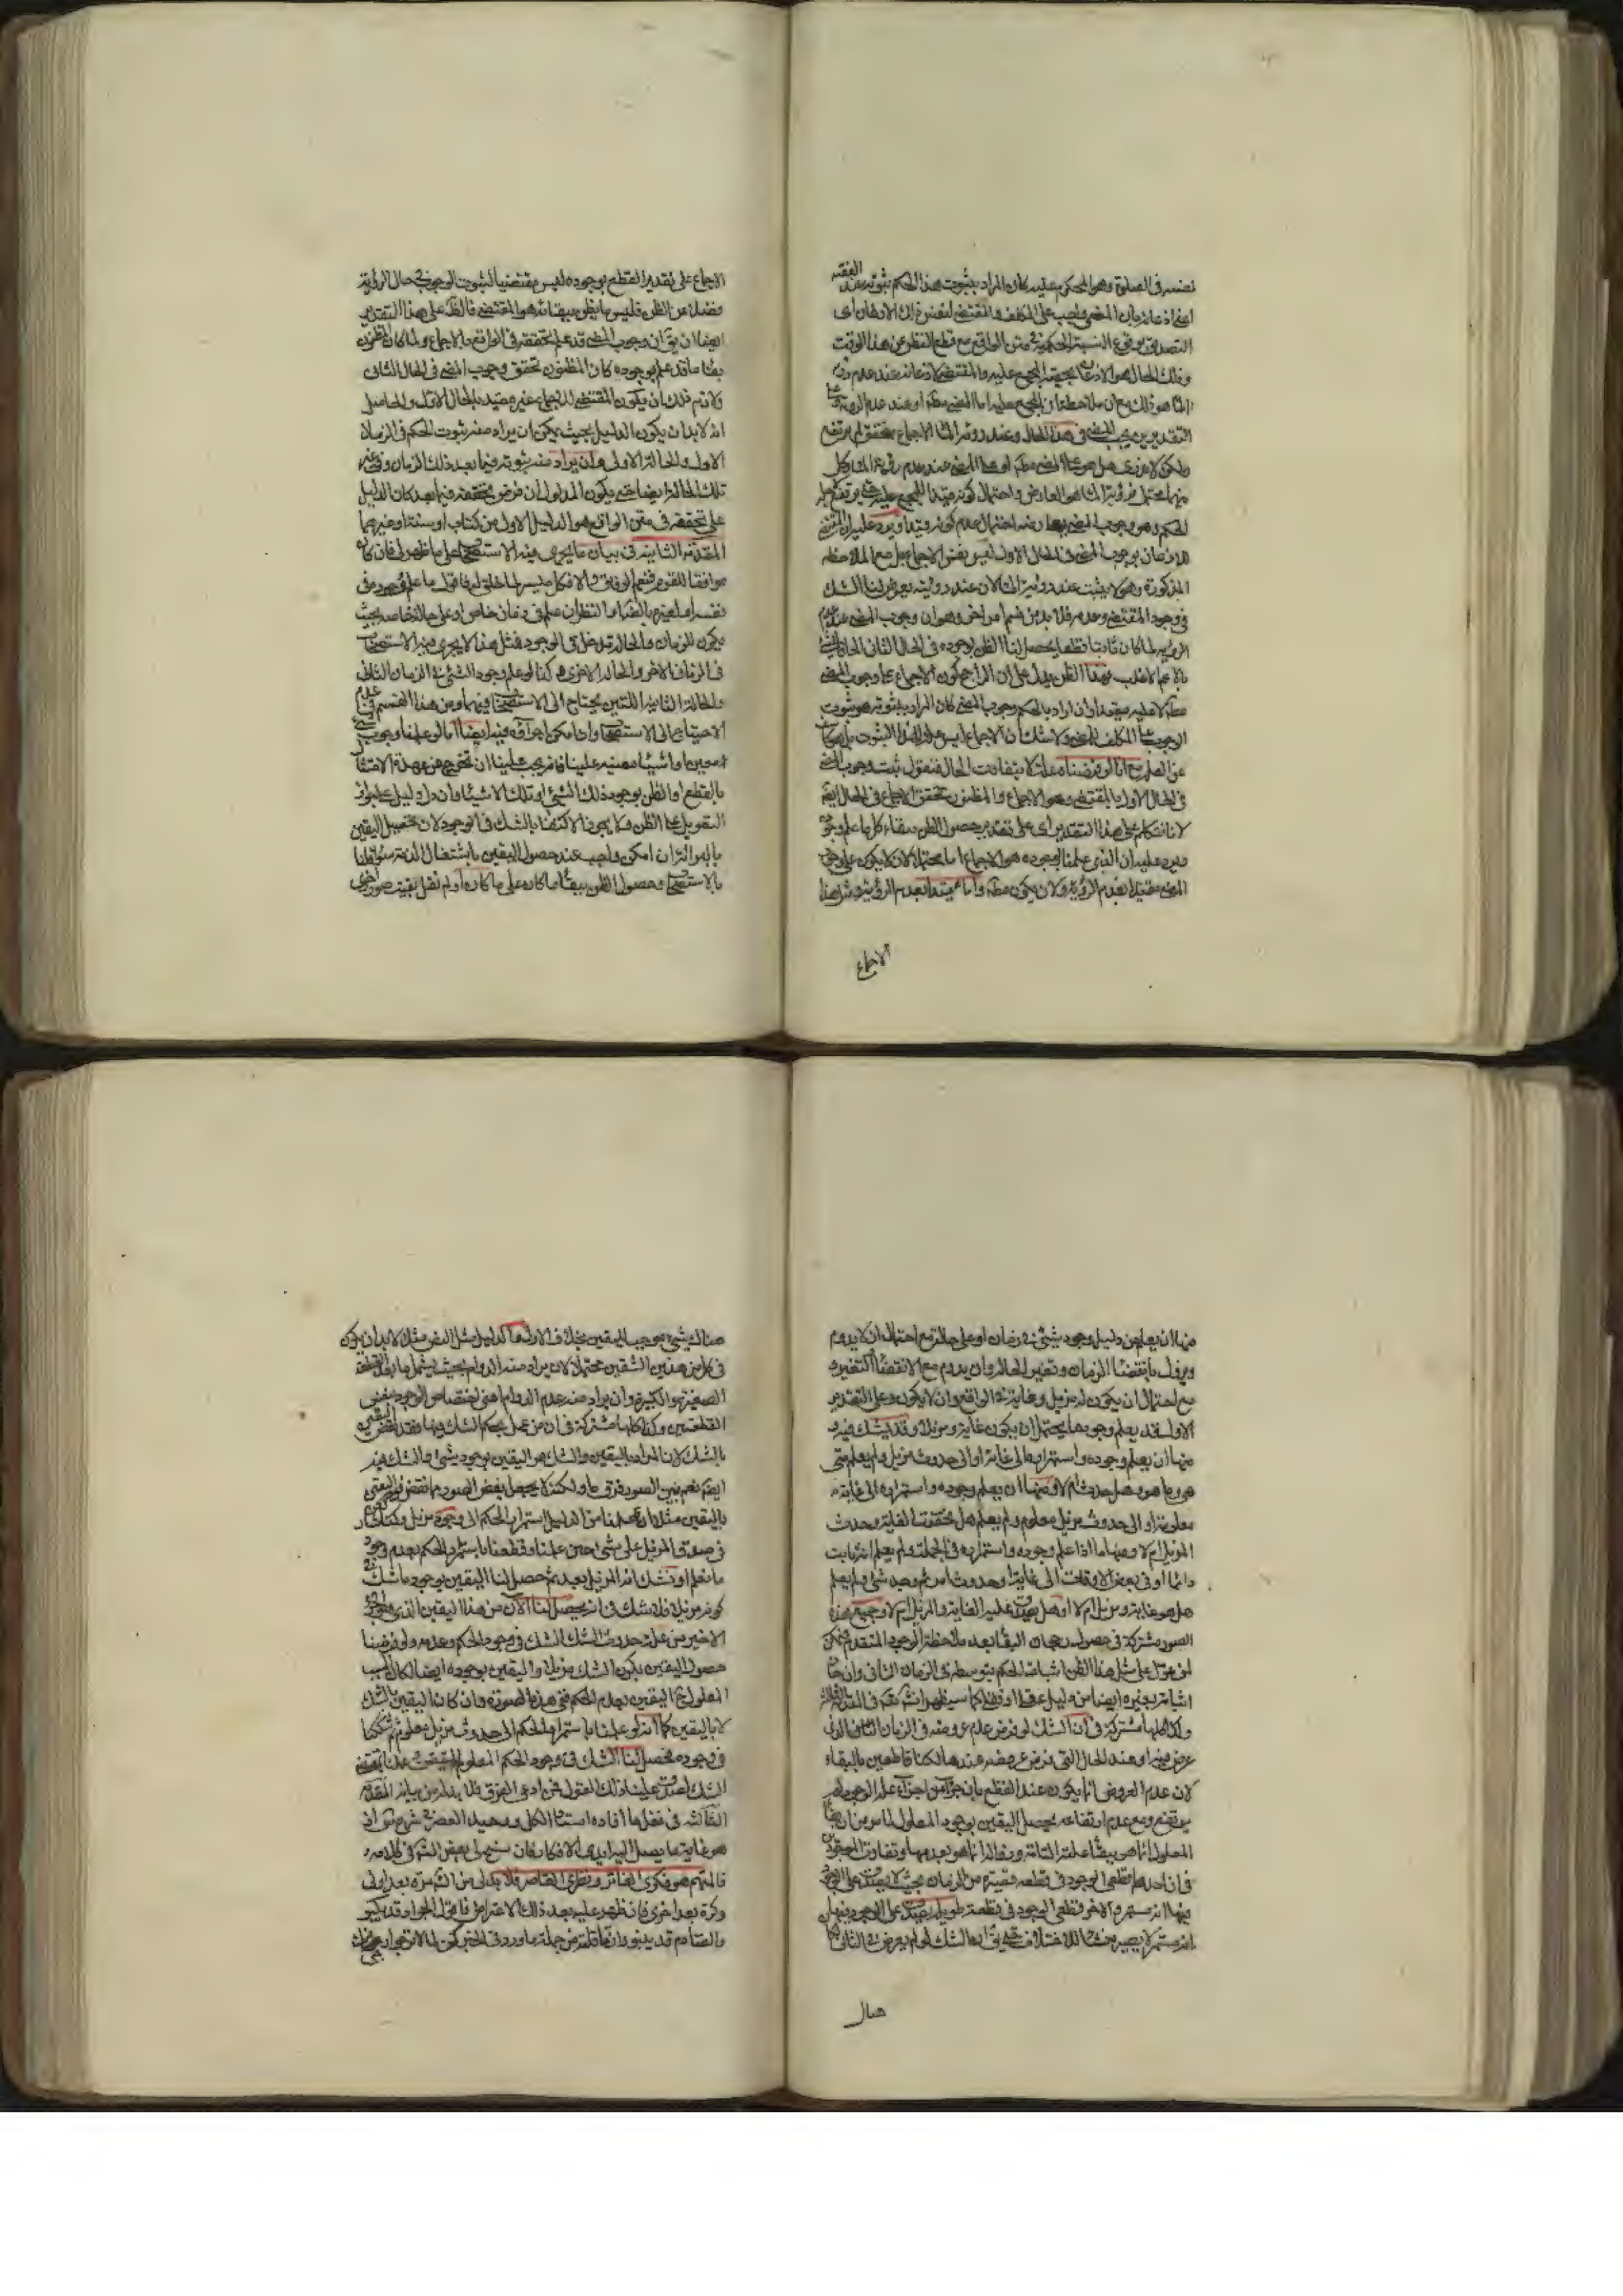 نفسه في الصلوة وهو الحكم عليه كان المراد بثبوت هذا الحكم ثبوته عند الفقيه
اعني اذعانه بان المضي واجب على المكلف والمقتضي لنفس ذلك الاذهان اى
التصديق بوقوع النسبة الحكمية في متن الواقع مع قطع النظر عن هذا الوقت
وذلك الحال هو الاذعان بحقية المجمع عليه والمقتضي لاذعانه عند عدم
الماء هو ذلك مع ان ملاحظة ان المجمع عليه اما المضي مطلقا او عند عدم الرؤية
التقديرين يجب المضي في هذا الحال وعند رؤية الماء الاجماع
ولكن لا ندرى هل هو على المضي مطلقا او على المضي عند عدم رؤية الماء وكل
منهما محتمل فرؤية الماء هو العارض واحتمال كونه قيدا للمجمع عليه
الحكم وهو وجوب المضي يعارضه احتمال عدم كونه قيدا ويرد عليه ان المقتضي
للاذعان بوجوب المضي في الحال الاول ليس نفس الاجماع بل مع الملاحظة
المذكورة وهو لا يثبت عند رؤية الماء لان عند رؤيته يعرض لنا الشك
في وجود المقتضي وعدمه فلا بد من ضم امر اخر وهو ان وجوب المضي عند عدم
الرؤية لما كان ثابتا قطعا يحصل لنا الظن بوجوده في الحال الثاني
بالاعم الاغلب فهذا الظن يدل على ان الراجح كون الاجماع على وجوب المضي
مطلقا لا عليه مقيدا وان اراد بالحكم وجوب المضي كان المراد بثبوته هو ثبوت
الوجوب على المكلف ولا شك ان الاجماع ليس علة لهذا الثبوت بل
عن العلم مع انا لو فرضناه علة لا يتفاوت الحال فنقول ثبت وجوب المضي
في الحال الاول بالمقتضي وهو الاجماع والمظنون تحقق الاجماع في الحال
لانا نتكلم على هذا التقدير اى على تقدير حصول الظن ببقاء كل ما علم وجوده
ويرد عليه ان الذى علمنا بوجوده هو الاجماع اما محتملا لان لا يكون على وجوب
المضي مقيدا بعدم الرؤية ولان يكون مطلقا واما مقيدا بعدم الرؤية ومثل هذا
الاجماع
الاجماع على تقدير القطع بوجوده ليس مقتضيا لثبوت الوجوب في حال الرؤية
فضلا عن الظن فليس ما يظن ببقائه هو المقتضي فالظن على هذا التقدير
ايضا ان يق ان وجوب المضي قد علم تحققه في الواقع بالاجماع ولما كان المظنون
بقاء ما قد علم بوجوده كان المظنون تحقق وجوب المضي في الحال الثاني
ولازم ذلك ان يكون المقتضي للاجماع غير مقيد بالحال الاول والحاصل
انه لا بد ان يكون الدليل بحيث يمكن ان يراد منه ثبوت الحكم في الزمان
الاول والحالة الاولى وان يراد منه ثبوته فيما بعد ذلك الزمان وفي غير
تلك الحالة ايضا حتى يكون المدلول ان فرض تحققه فيما بعد كان الدليل
على تحققه في متن الواقع هو الدليل الاول من كتاب او سنة او غيرهما
المقدمة الثانية في بيان ما يجرى فيه الاستصحاب على ما ظهر لي فان كان
موافقا للقوم فنعم الوفاق والا فكل ميسر لما خلق له فاقول ما علم وجوده في
نفسه او لغيره بالضرورة او النظر ان علم في زمان خاص او على حالة خاصة بحيث
يكون للزمان والحالة مدخل في الوجود فمثل هذا لا يجرى فيه الاستصحاب
في الزمان الاخر والحالة الاخرى وكذا لو علم وجود الشئ في الزمان الثاني
والحالة الثانية اللتين يحتاج الى الاستصحاب فيهما ومن هذا القسم في عدم
الاحتياج الى الاستصحاب وان امكن اجراؤه فيه ايضا ما لو علمنا وجوب شئ
معين او اشياء معينة علينا فانه يجب علينا ان نخرج عن عهدة الامتثال
بالقطع او الظن بوجود ذلك الشئ او تلك الاشياء وان دل دليل على جواز
التعويل على الظن ولا يجوز الاكتفاء بالشك في الوجود لان تحصيل اليقين
بالبراءة ان امكن واجب عند حصول اليقين باشتغال الذمة سواء قلنا
بالاستصحاب وحصول الظن ببقاء ما كان على ما كان او لم نقل بقيت صور اخرى
منها ان يعلم من دليل وجود شئ في زمان او على حالة مع احتمال ان لا يدوم
ويزول بانقضاء الزمان وتغير الحالة وان يدوم مع الانقضاء والتغير
مع احتمال ان يكون له مزيل وغاية في الواقع وان لا يكون وعلى التقدير
الاول قد يعلم وجود ما يحتمل ان يكون غاية ومزيلا وقد يشك فيه و
منها ان يعلم وجوده واستمراره الى غاية او الى حدوث مزيل ولم يعلم متى
هو وما هو وهل حدث ام لا ومنها ان يعلم وجوده واستمراره الى غاية
معلومة او الى حدوث مزيل معلوم ولم يعلم هل تحققت الغاية وحدث
المزيل ام لا ومنها ما اذا علم وجوده واستمراره في الجملة ولم يعلم انه ثابت
دائما او في بعض الاوقات الى غاية او حدوث امر ثم وجد شئ ولم يعلم
هل هو غاية ومزيل ام لا او هل يصدق عليه الغاية والمزيل ام لا وجميع هذه
الصور مشتركة في حصول رجحان البقاء بعد ملاحظة الوجود المتقدم فيمكن
لمن عول على مثل هذا الظن اثبات الحكم بتوسطه في الزمان الثاني وان جاز
اثباته بغيره ايضا من دليل عقلي او نقلي كما سيظهر ان شاء الله في المقدمة الثالثة
وكذا كلها مشتركة في ان الشك لو فرض عدم عروضه في الزمان الثاني الذى
عرض فيه او عند الحال التي فرض عروضه عندها لكنا قاطعين بالبقاء
لان عدم العروض انما يكون عند القطع بان جزء من اجزاء علة الوجود لم
يرتفع ومع عدم ارتفاعه يحصل اليقين بوجود المعلول لما مر من ان بقاء
المعلول انما هو ببقاء علته التامة وزواله انما هو بعدمها وتفاوت الصورتين
في ان احدهما قطعي الوجود في قطعة قصيرة من الزمان بحيث لا يصدق على الوجود
فيها انه مستمر والاخر قطعي الوجود في قطعة طويلة يصدق على الوجود فيها
انه مستمر لا يصير منشأ للاختلاف حتى يق ان الشك لو لم يعرض في الثاني كان
هناك
هناك شئ موجب لليقين بخلاف الاول فان الدليل مثل النص مثلا لا بد ان يكون
في كل من هذين الشقين محتملا لان يراد منه الدوام بحيث يشمل ما بعد القطعة
الصغيرة والكبيرة وان يراد منه عدم الدوام اعني اختصاص الوجود بنفس
القطعتين وكذا كلها مشتركة في ان من عمل بحكم الشك فيها فقد نقض اليقين
بالشك لان المراد باليقين والشك هو اليقين بوجود شئ والشك فيه
ايضا نعم بين الصور فرق ما ولكنه لا يجعل بعض الصور مما نقض فيه اليقين
باليقين مثلا اذا علمنا من الدليل استمرار الحكم الى وجود مزيل
في صدق المزيل على شئ احين علمنا وقطعنا باستمرار الحكم بعدم وجود
ما نعلم او نشك انه المزيل بعد ثم حصل لنا اليقين بوجود ما نشك في
كونه مزيلا فلا شك في انه يحصل لنا الان من هذا اليقين الذى هو الجزء
الاخير من علة حدوث الشك الشك في وجود الحكم وعدمه ولو فرضنا
حصول اليقين بكون الشك مزيلا واليقين بوجوده ايضا لكان السبب
المعلول هو اليقين بعدم الحكم ففي هذه الصورة وان كان اليقين بالشك
لا باليقين كما انه لو علمنا باستمرار الحكم الى حدوث مزيل معلوم ثم شككنا
في وجوده فحصل لنا الشك في وجود الحكم المعلوم
الشك علينا ذلك القول فمن ادعى الفرق فلا بد له من بيانه المقدمة
الثالثة في نقل ما افاده استاد الكل وحيد العصر في شرح اذ
هو غاية ما يصل اليه ايدى الافكار فان سنح لي بعض الشك في كلامه
فالمتهم هو فكرى الفاتر ونظرى القاصر فلا بد لي من التأمل مرة بعد اولى
وكرة بعد اخرى فان ظهر عليه بعد ذلك الاعتراض فاقول الجواد قد يكبو
والصارم قد ينبو